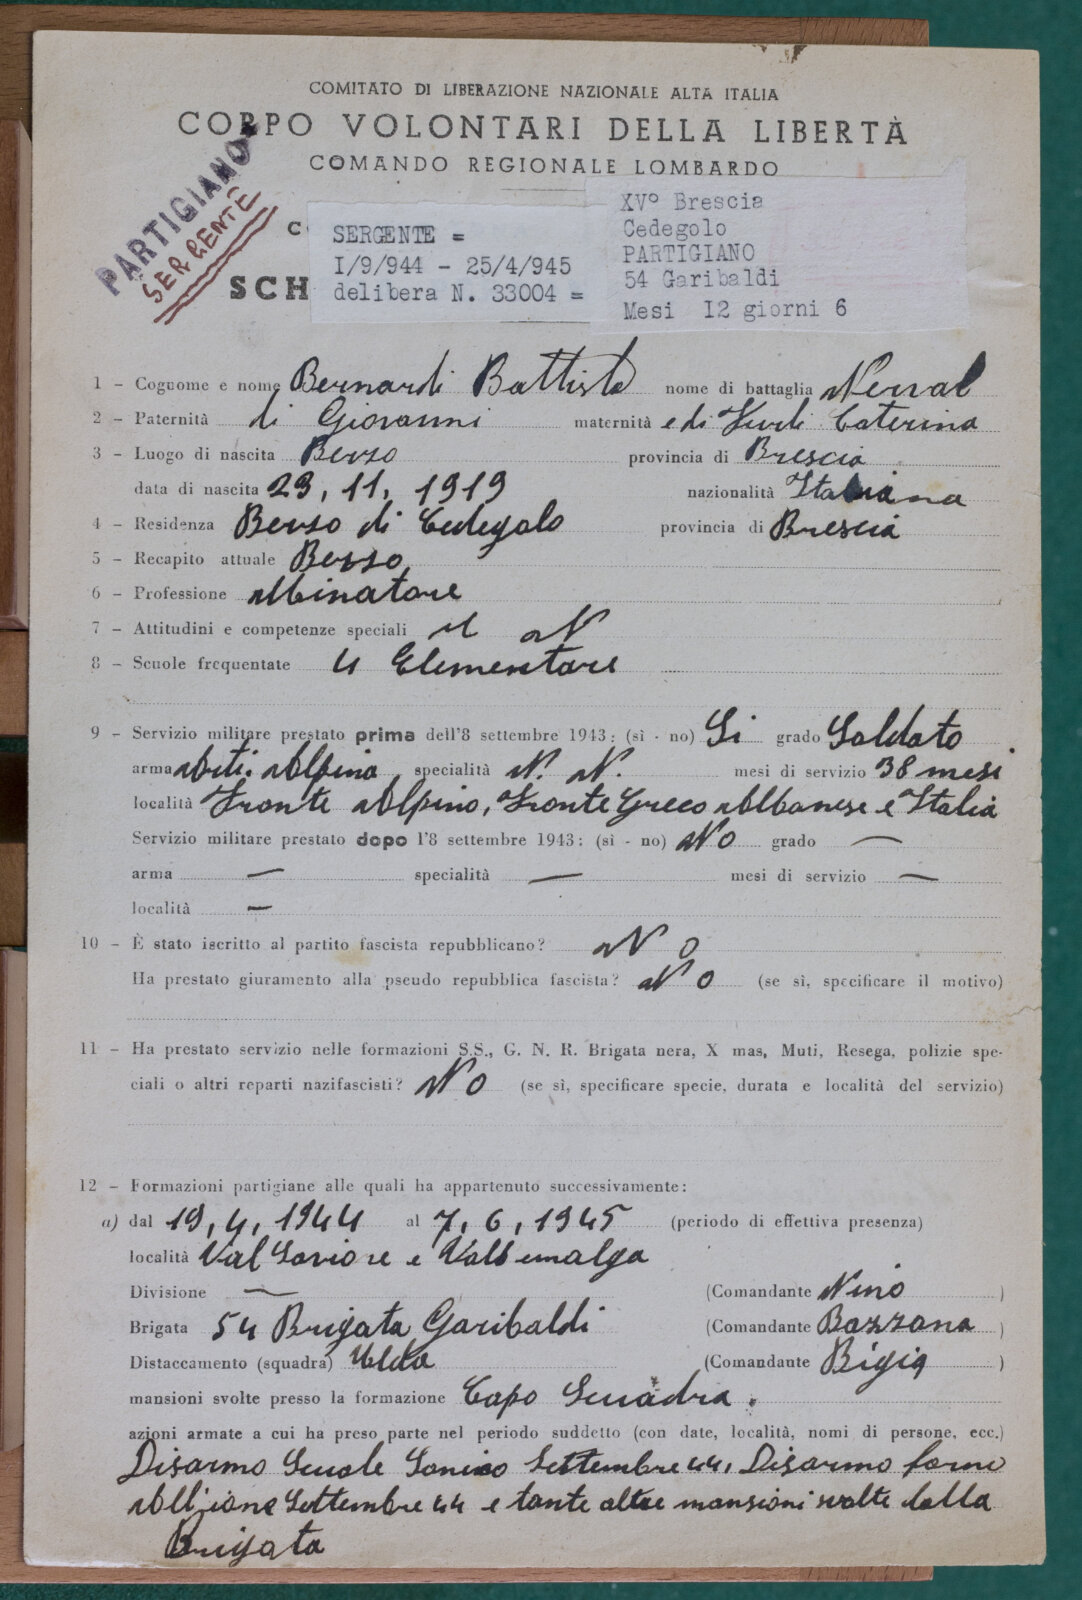 COMITATO DI LIBERAZIONE NAZIONALE ALTA ITALIA
CORPO VOLONTARI DELLA LIBERTÀ
COMANDO REGIONALE LOMBARDO
PARTIGIANO
SERGENTE
C
SCH
SERGENTE =
I/9/944 - 25/4/945
delibera N. 33004 =
XV° Brescia
Cedegolo
PARTIGIANO
54 Garibaldi
Mesi I2 giorni 6
1 - Cognome e nome Bernardi Battista nome di battaglia
2 - Paternità di Giovanni maternità e di Caterina
3 - Luogo di nascita Berzo provincia di Brescia
data di nascita 29, 11, 1919 nazionalità Italiana
4 - Residenza Berzo di Cedegolo provincia di Brescia
5 - Recapito attuale Berzo
6 - Professione
7 - Attitudini e competenze speciali N
8 - Scuole frequentate 4 Elementare
9 - Servizio militare prestato prima dell'8 settembre 1943: (sì - no) Si grado Soldato
arma Alpina specialità N. N. mesi di servizio 38 mesi
località Fronte Alpino, Fronte Greco Albanese e Italia
Servizio militare prestato dopo l'8 settembre 1943: (sì - no) No grado —
arma — specialità — mesi di servizio —
località —
10 - È stato iscritto al partito fascista repubblicano? No
Ha prestato giuramento alla pseudo repubblica fascista? No (se sì, specificare il motivo)
11 - Ha prestato servizio nelle formazioni S.S., G. N. R. Brigata nera, X mas, Muti, Resega, polizie spe-
ciali o altri reparti nazifascisti? No (se sì, specificare specie, durata e località del servizio)
12 - Formazioni partigiane alle quali ha appartenuto successivamente:
a) dal 19, 4, 1944 al 7, 6, 1945 (periodo di effettiva presenza)
località Val Saviore e
Divisione — (Comandante Nino )
Brigata 54 Brigata Garibaldi (Comandante Bazzana )
Distaccamento (squadra) (Comandante Bigia )
mansioni svolte presso la formazione Capo Scuadra.
azioni armate a cui ha preso parte nel periodo suddetto (con date, località, nomi di persone, ecc.)
Disarmo Scuole Sonico Settembre 44, Disarmo forno
Allione Settembre 44 e tante altre mansioni svolte dalla
Brigata